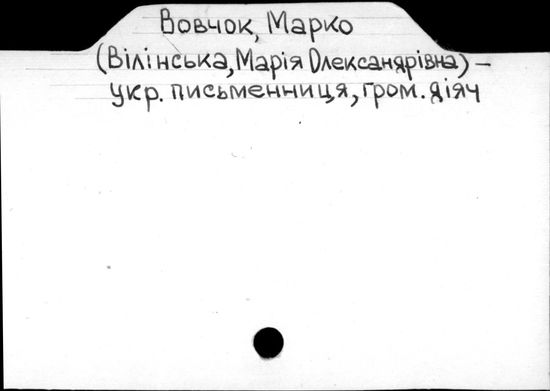 Вовчок, Марко
(Вілінська, Марія Олександрівна) –
укр. письменниця, гром. діяч